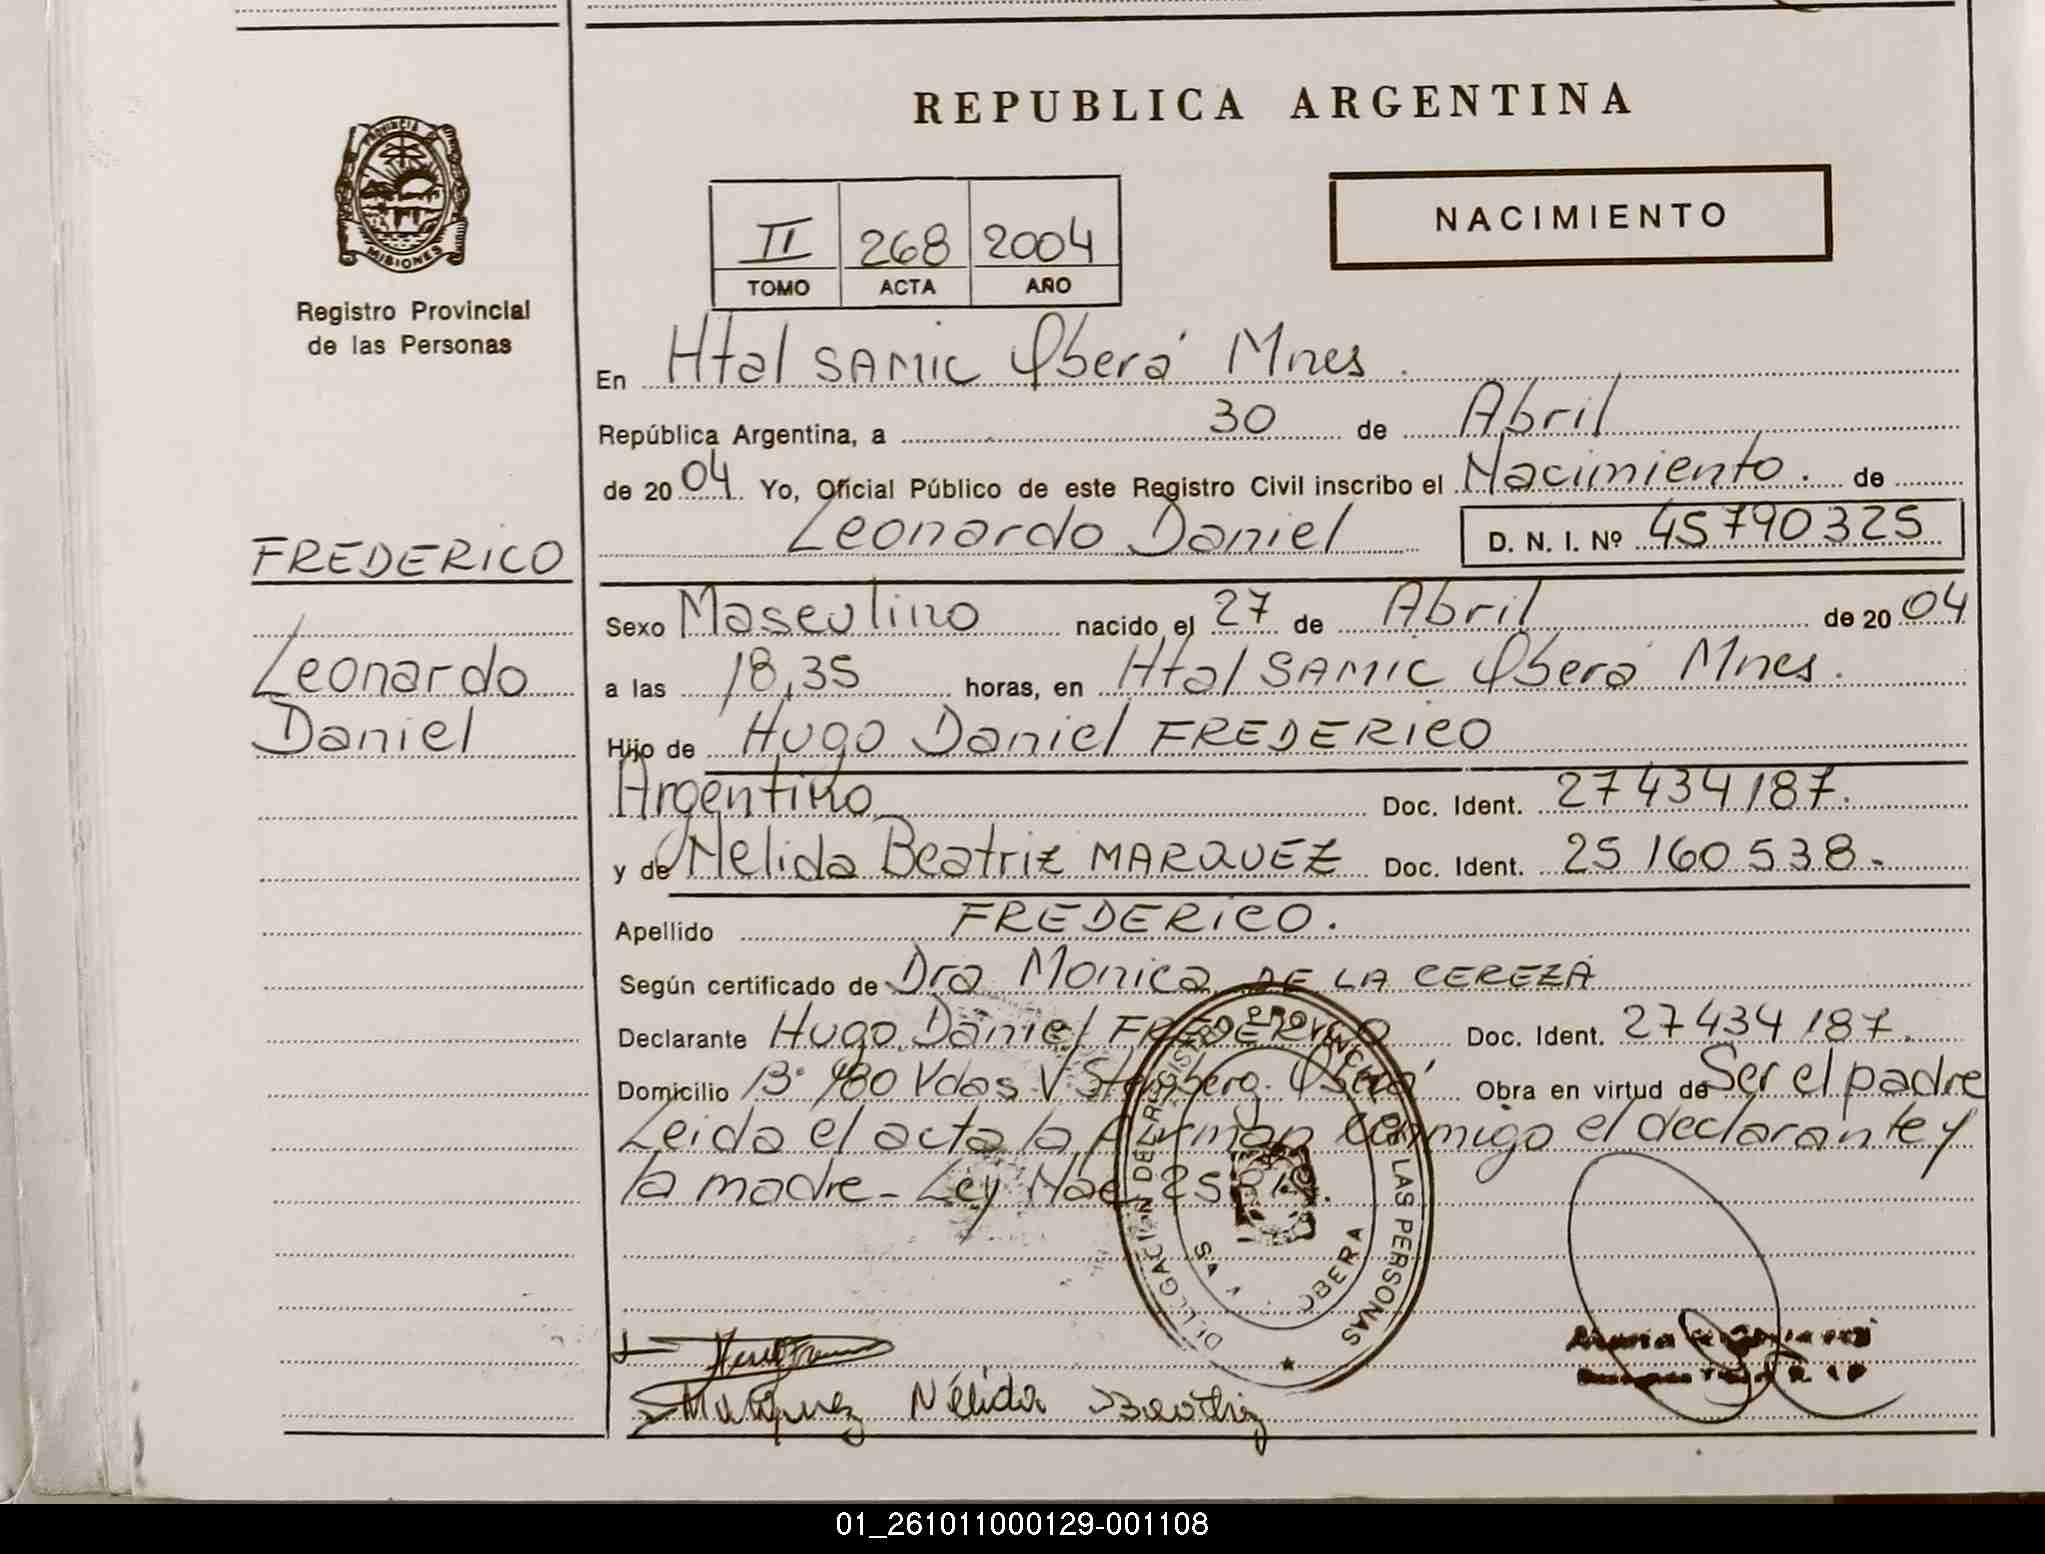 REPUBLICA ARGENTINA
PROVINCIA DE
MISIONES
Registro Provincial
de las Personas
II 268 2004
TOMO ACTA AÑO
NACIMIENTO
En Htal SAMIC Oberá Mnes.
República Argentina, a 30 de Abril
de 2004 Yo, Oficial Público de este Registro Civil inscribo el Nacimiento. de
Leonardo Daniel D. N. I. Nº 45790325
FREDERICO
Leonardo
Daniel
Sexo Masculino nacido el 27 de Abril de 2004
a las 18,35 horas, en Htal SAMIC Oberá Mnes.
Hijo de Hugo Daniel FREDERICO
Argentino Doc. Ident. 27434187.
y de Nelida Beatriz MARQUEZ Doc. Ident. 25160538-
Apellido FREDERICO.
Según certificado de Dra Monica DE LA CEREZA
Declarante Hugo Daniel FREDERICO Doc. Ident. 27434187.
Domicilio Bº 180 Vdas V Stemberg. Oberá Obra en virtud de Ser el padre
Leida el acta la firman conmigo el declarante y
la madre - Ley Nac
DELEGACION DEL REGISTRO PROVINCIAL DE LAS PERSONAS
OBERA
Marquez Nélida Beatriz
01_261011000129-001108